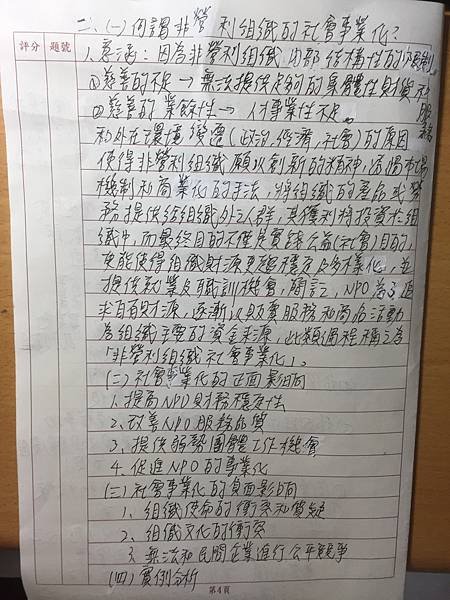 二、(一)何謂非營利組織的社會事業化?
評分 題號
1.意涵:因為非營利組織內部結構性的限制。
①慈善的不足→無法提供足夠的集體性財貨和服務
②慈善的業餘性→人才專業性不足。
和外在環境變遷(政治,經濟,社會)的原因
使得非營利組織願以創新的精神,透過市場
機制和商業化的手法,將組織的產品或勞
務提供給組織外之人群,其獲利將投資於組
織中,而最終目的不僅是實踐公益(社會)目的,
更能使得組織財源更趨穩定及多樣化,並
提供就業及職訓機會,簡言之,NPO為了追
求自有財源,逐漸以販售服務和商品活動
為組織主要的資金來源,此類過程稱之為
「非營利組織社會事業化」。
(二)社會事業化的正面影响
1.提高NPO財務穩定性
2.改善NPO服務品質
3.提供弱勢團體工作機會
4.促進NPO的專業化
(三)社會事業化的負面影响
1.組織使命的衝突和質疑
2.組織文化的衝突
3.無法和民間企業進行公平競爭
(四)實例分析
第4頁